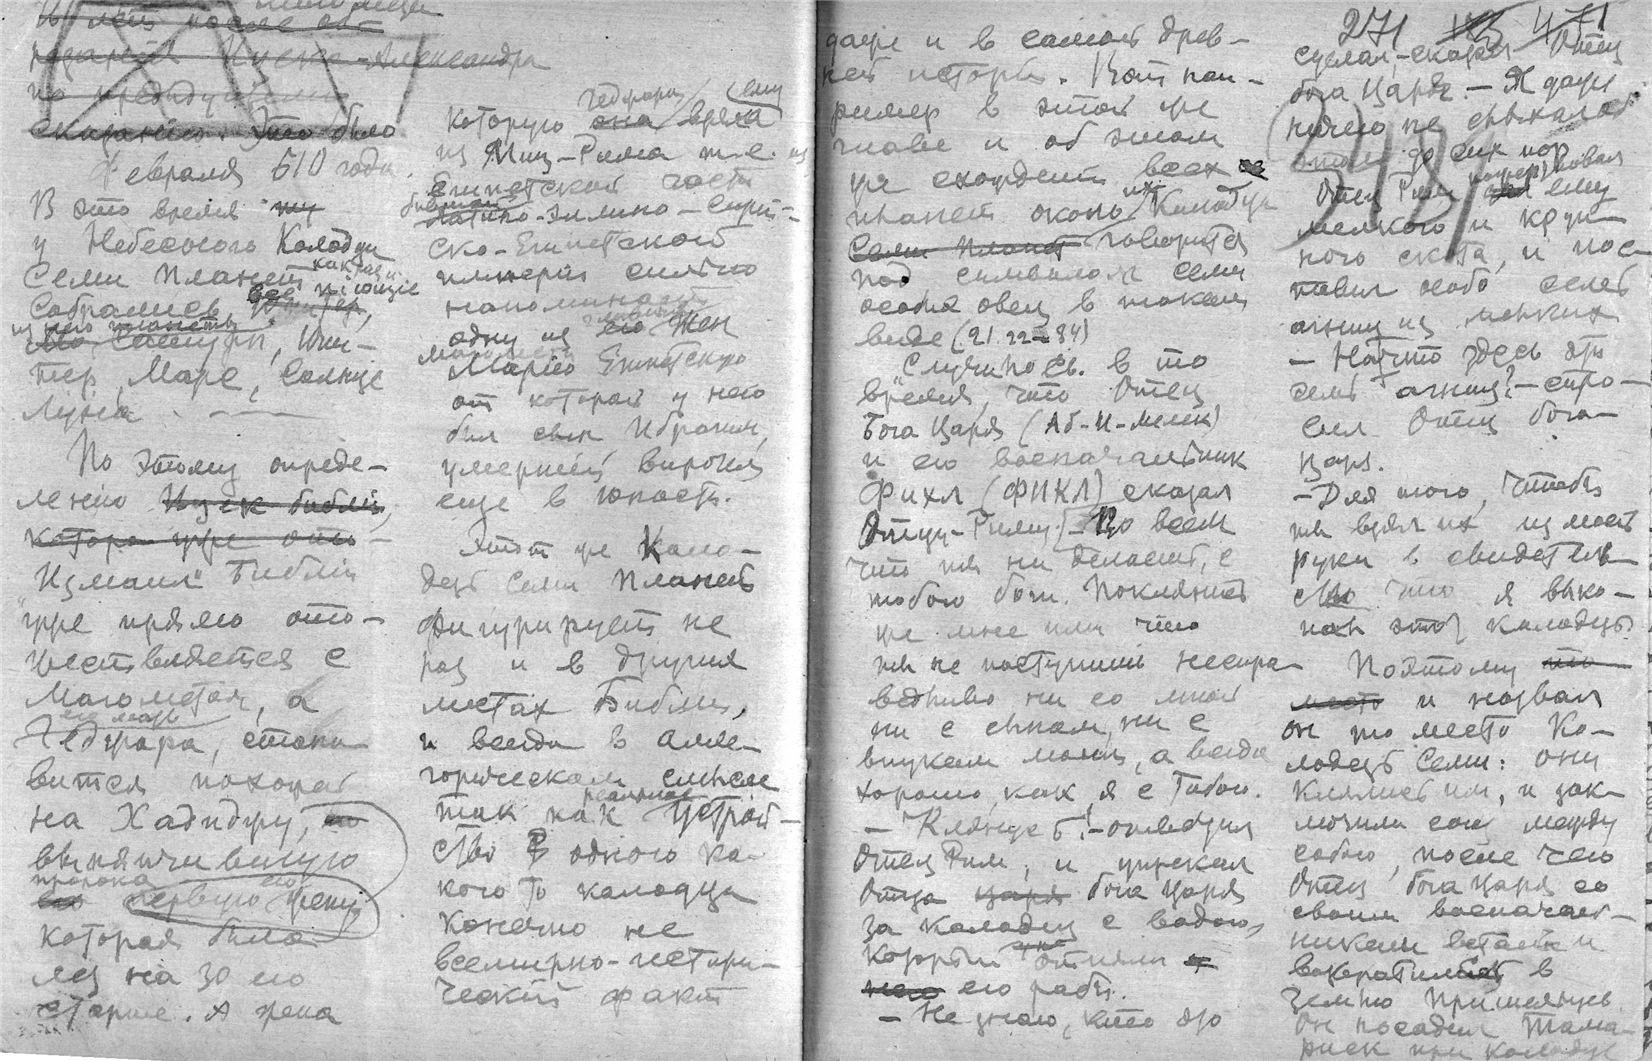 Февраля 510 года.
В это время
у Небесного Колодца
Семи Планет
Собрались все
Юпи-
тер, Марс, Солнце
Луна
По этому опреде-
лению
Измаил Библии
уже прямо ото-
жествляется с
Магометом, а
его мать
Геджара, стано-
вится похожей
на Хадиджу,
вынянчившую
пророка
первую его жену
которая была
лет на 30 его
старше. А жена
которую Геджара ему
из Миц-Рима т.е. из
египетской части
бывшей
Латино-Эллино-Сирий-
ско-Египетской
империи сильно
напоминает
одну из жен
Магомета
Марию Египетскую
от которой у него
был сын Ибрагим,
умерший
еще в юности.
Этот же Коло-
дезь Семи Планет
фигурирует не
раз и в других
местах Библии,
и всегда в алле-
горическом смысле
так как реальное устрой-
ство одного ка-
кого то колодца
конечно не
всемирно-истори-
ческий факт
даже и в самой древ-
ней истории. Вот нап-
ример в этой же
главе и об этом
же схождении всех
планет около их Колодца
говорится
под символом семи
особых овец в таком
виде (21.22-34)
"Случилось в то
время, что Отец
Бога Царя (Аб-И-Мелек)
и его военачальник
Фихл (ФИКЛ) сказал
Отцу-Риму: -Во всем
что ты ни делаешь, с
тобою бог. Поклянись
же мне что
ты не поступишь неспра-
ведливо ни со мной
ни с сыном, ни с
внуком моим, а всегда
хорошо, как я с Тобою.
- Клянусь!-отвечал
Отец Рим, и упрекал
Отца бога Царя
за колодец с водою,
который отняли
его рабы.
- Не знаю, кто это
271 471
сделал,-сказал Отец
бога Царя.- Я даже
ничего не слыхал об
этом до сих пор
Отец Рим ему
мелкого и круп-
ного скота, и пос-
тавил особо семь
агниц из мелких
- На что здесь эти
семь агниц?-спро-
сил Отец бога-
Царя.
-Для того, чтобы
ты взял их из моей
руки в свидетель-
ство что я выко-
пал этот колодезь.
Поэтому
и назвал
он то место Ко-
лодезь Семи: они
клялись там, и зак-
лючили союз между
собою, после чего
Отец бога Царя со
своим военачаль-
ником встали и
возвратились в
землю Пришельцев
Он посадил Тама-
риск при колодце